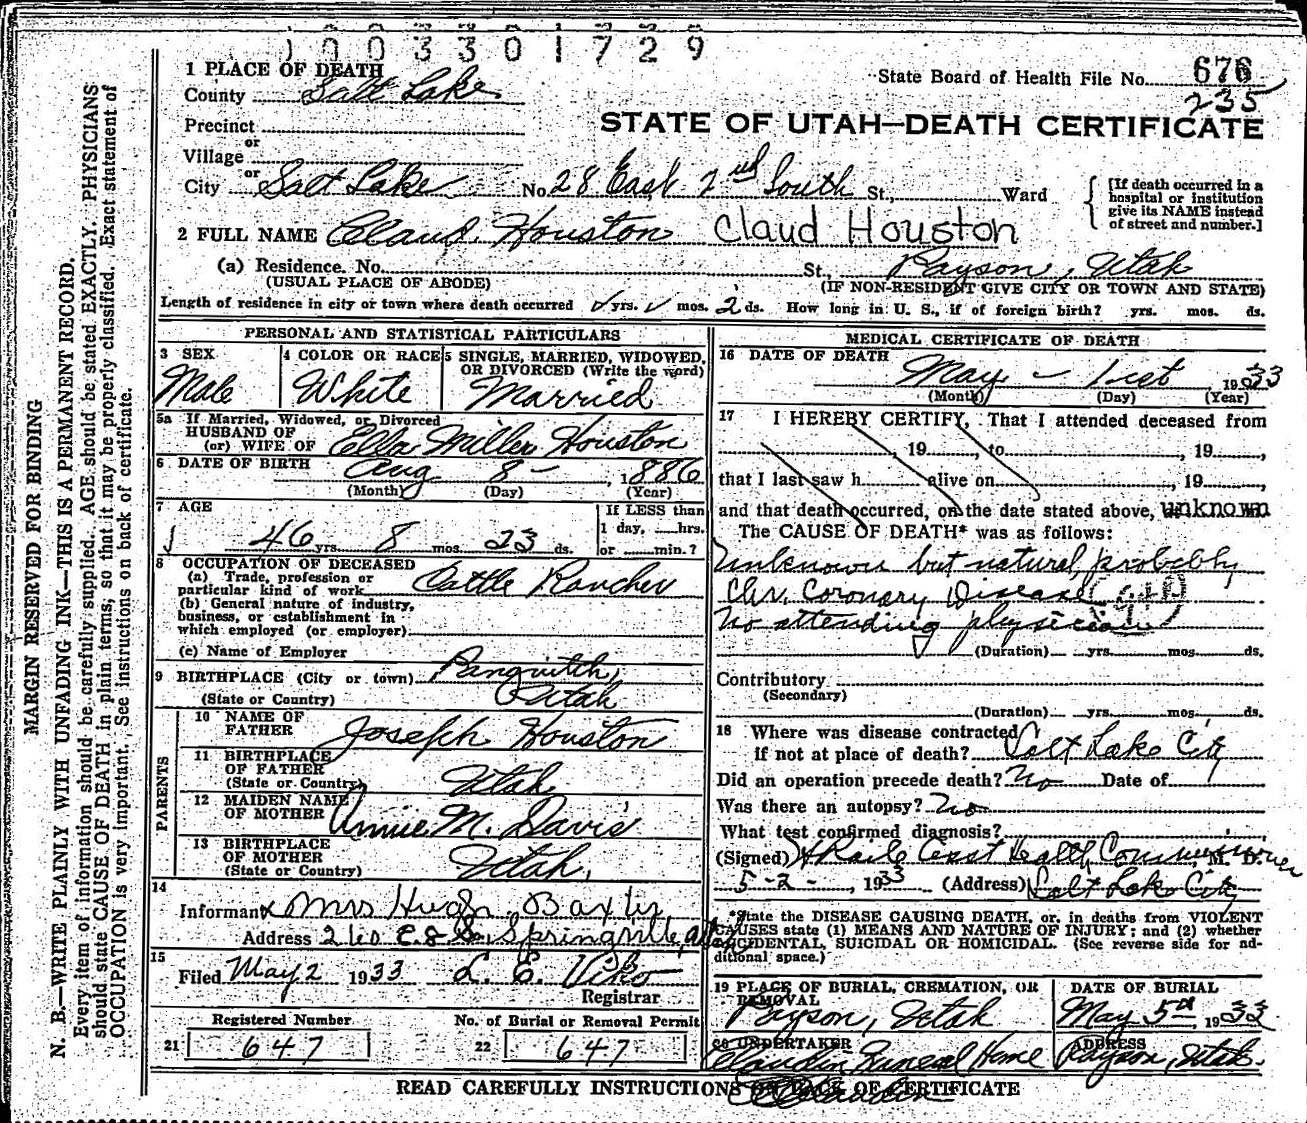 1003301729
1 PLACE OF DEATH
County Salt Lake
State Board of Health File No. 676
235
Precinct
or
Village
or
City Salt Lake No. 28 East 2nd South St., Ward
STATE OF UTAH—DEATH CERTIFICATE
[If death occurred in a
hospital or institution
give its NAME instead
of street and number.]
2 FULL NAME Claud Houston Claud Houston
(a) Residence. No. St., Payson, Utah
(USUAL PLACE OF ABODE) (IF NON-RESIDENT GIVE CITY OR TOWN AND STATE)
Length of residence in city or town where death occurred yrs. mos. 2 ds. How long in U. S., if of foreign birth? yrs. mos. ds.
PERSONAL AND STATISTICAL PARTICULARS
3 SEX 4 COLOR OR RACE 5 SINGLE, MARRIED, WIDOWED,
OR DIVORCED (Write the word)
Male White Married
5a If Married, Widowed, or Divorced
HUSBAND OF
(or) WIFE OF Ella Miller Houston
6 DATE OF BIRTH Aug 8 - , 1886
(Month) (Day) (Year)
7 AGE If LESS than
1 day, hrs.
46 yrs. 8 mos. 23 ds. or min.?
8 OCCUPATION OF DECEASED
(a) Trade, profession or
particular kind of work Cattle Rancher
(b) General nature of industry,
business, or establishment in
which employed (or employer)
(c) Name of Employer
9 BIRTHPLACE (City or town) Panguitch,
(State or Country) Utah
PARENTS
10 NAME OF
FATHER Joseph Houston
11 BIRTHPLACE
OF FATHER
(State or Country) Utah
12 MAIDEN NAME
OF MOTHER Annie M. Davis
13 BIRTHPLACE
OF MOTHER
(State or Country) Utah,
14
Informant Mrs Hugh Baxter
Address Springville,
15
Filed May 2 1933
Registrar
Registered Number No. of Burial or Removal Permit
21 647 22 647
MEDICAL CERTIFICATE OF DEATH
16 DATE OF DEATH
May - 1st , 1933
(Month) (Day) (Year)
17 I HEREBY CERTIFY, That I attended deceased from
, 19 , to , 19 ,
that I last saw h alive on , 19 ,
and that death occurred, on the date stated above, unknown
The CAUSE OF DEATH* was as follows:
Unknown but natural, probably
Chr. Coronary Disease
No attending physician
(Duration) yrs. mos. ds.
Contributory
(Secondary)
(Duration) yrs. mos. ds.
18 Where was disease contracted
if not at place of death? Salt Lake City
Did an operation precede death? No Date of
Was there an autopsy? No
What test confirmed diagnosis?
(Signed) Health Commissioner M. D.
5-2- , 1933 (Address) Salt Lake City
*State the DISEASE CAUSING DEATH, or, in deaths from VIOLENT
CAUSES state (1) MEANS AND NATURE OF INJURY; and (2) whether
ACCIDENTAL, SUICIDAL OR HOMICIDAL. (See reverse side for ad-
ditional space.)
19 PLACE OF BURIAL, CREMATION, OR
REMOVAL DATE OF BURIAL
Payson, Utah May 5th, 1933
20 UNDERTAKER ADDRESS
Claudin Funeral Home Payson, Utah
READ CAREFULLY INSTRUCTIONS ON BACK OF CERTIFICATE
MARGIN RESERVED FOR BINDING
N. B.—WRITE PLAINLY WITH UNFADING INK—THIS IS A PERMANENT RECORD.
Every item of information should be carefully supplied. AGE should be stated EXACTLY. PHYSICIANS
should state CAUSE OF DEATH in plain terms, so that it may be properly classified. Exact statement of
OCCUPATION is very important. See instructions on back of certificate.